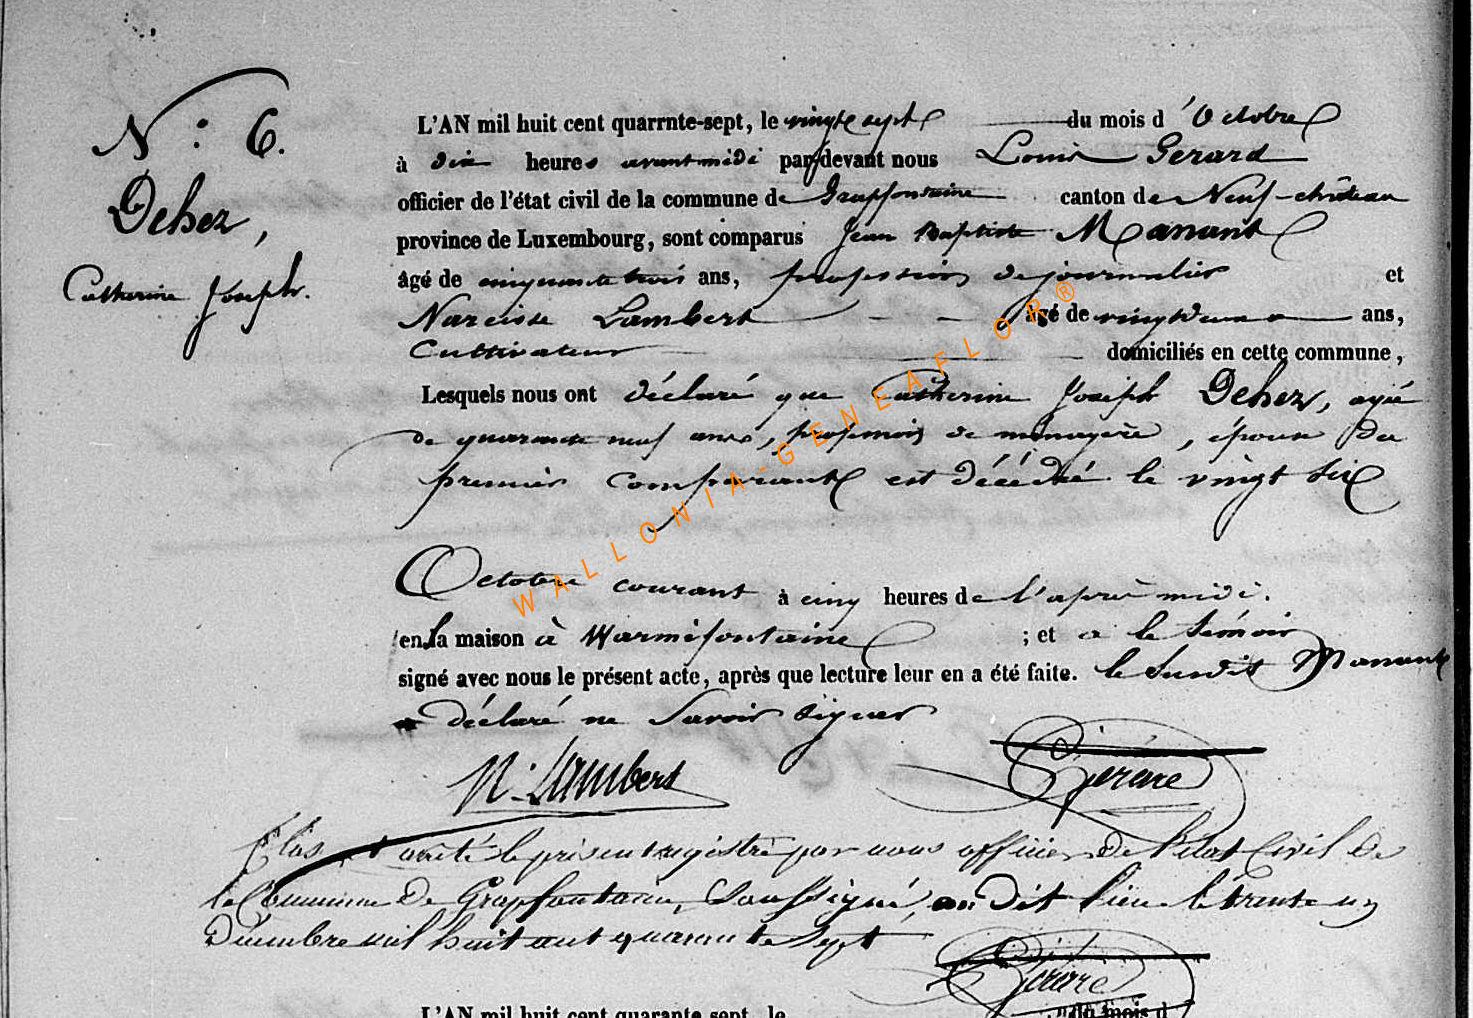 N.° 6.
Dehez,
Catherine Joseph.
L'AN mil huit cent quarrnte-sept, le vingt sept du mois d'Octobre
à dix heures avant midi par-devant nous Louis Gerard
officier de l'état civil de la commune de Grapfontaine canton de Neuf-château
province de Luxembourg, sont comparus Jean Baptiste Manant
âgé de cinquante trois ans, profession de journalier et
Narcisse Lambert âgé de vingt deux ans,
Cultivateur domiciliés en cette commune,
Lesquels nous ont déclaré que Catherine Joseph Dehez, agée
de quarante neuf ans, profession de ménagère, épouse du
premier comparant est décédé le vingt six
Octobre courant à cinq heures de l'après midi.
en la maison à Warmifontaine ; et a le témoin
signé avec nous le présent acte, après que lecture leur en a été faite. le Susdit Manant
a déclaré ne Savoir Signer
N. Lambert Gérard
Clos et arrêté le présent registre par nous officier de l'état Civil de
la Commune de Grapfontaine, Soussigné, au dit lieu le trente un
Décembre mil huit cent quarante sept
Gérard
L'AN mil huit cent quarante sept, le du mois d
WALLONIA-GENEAFLOR®